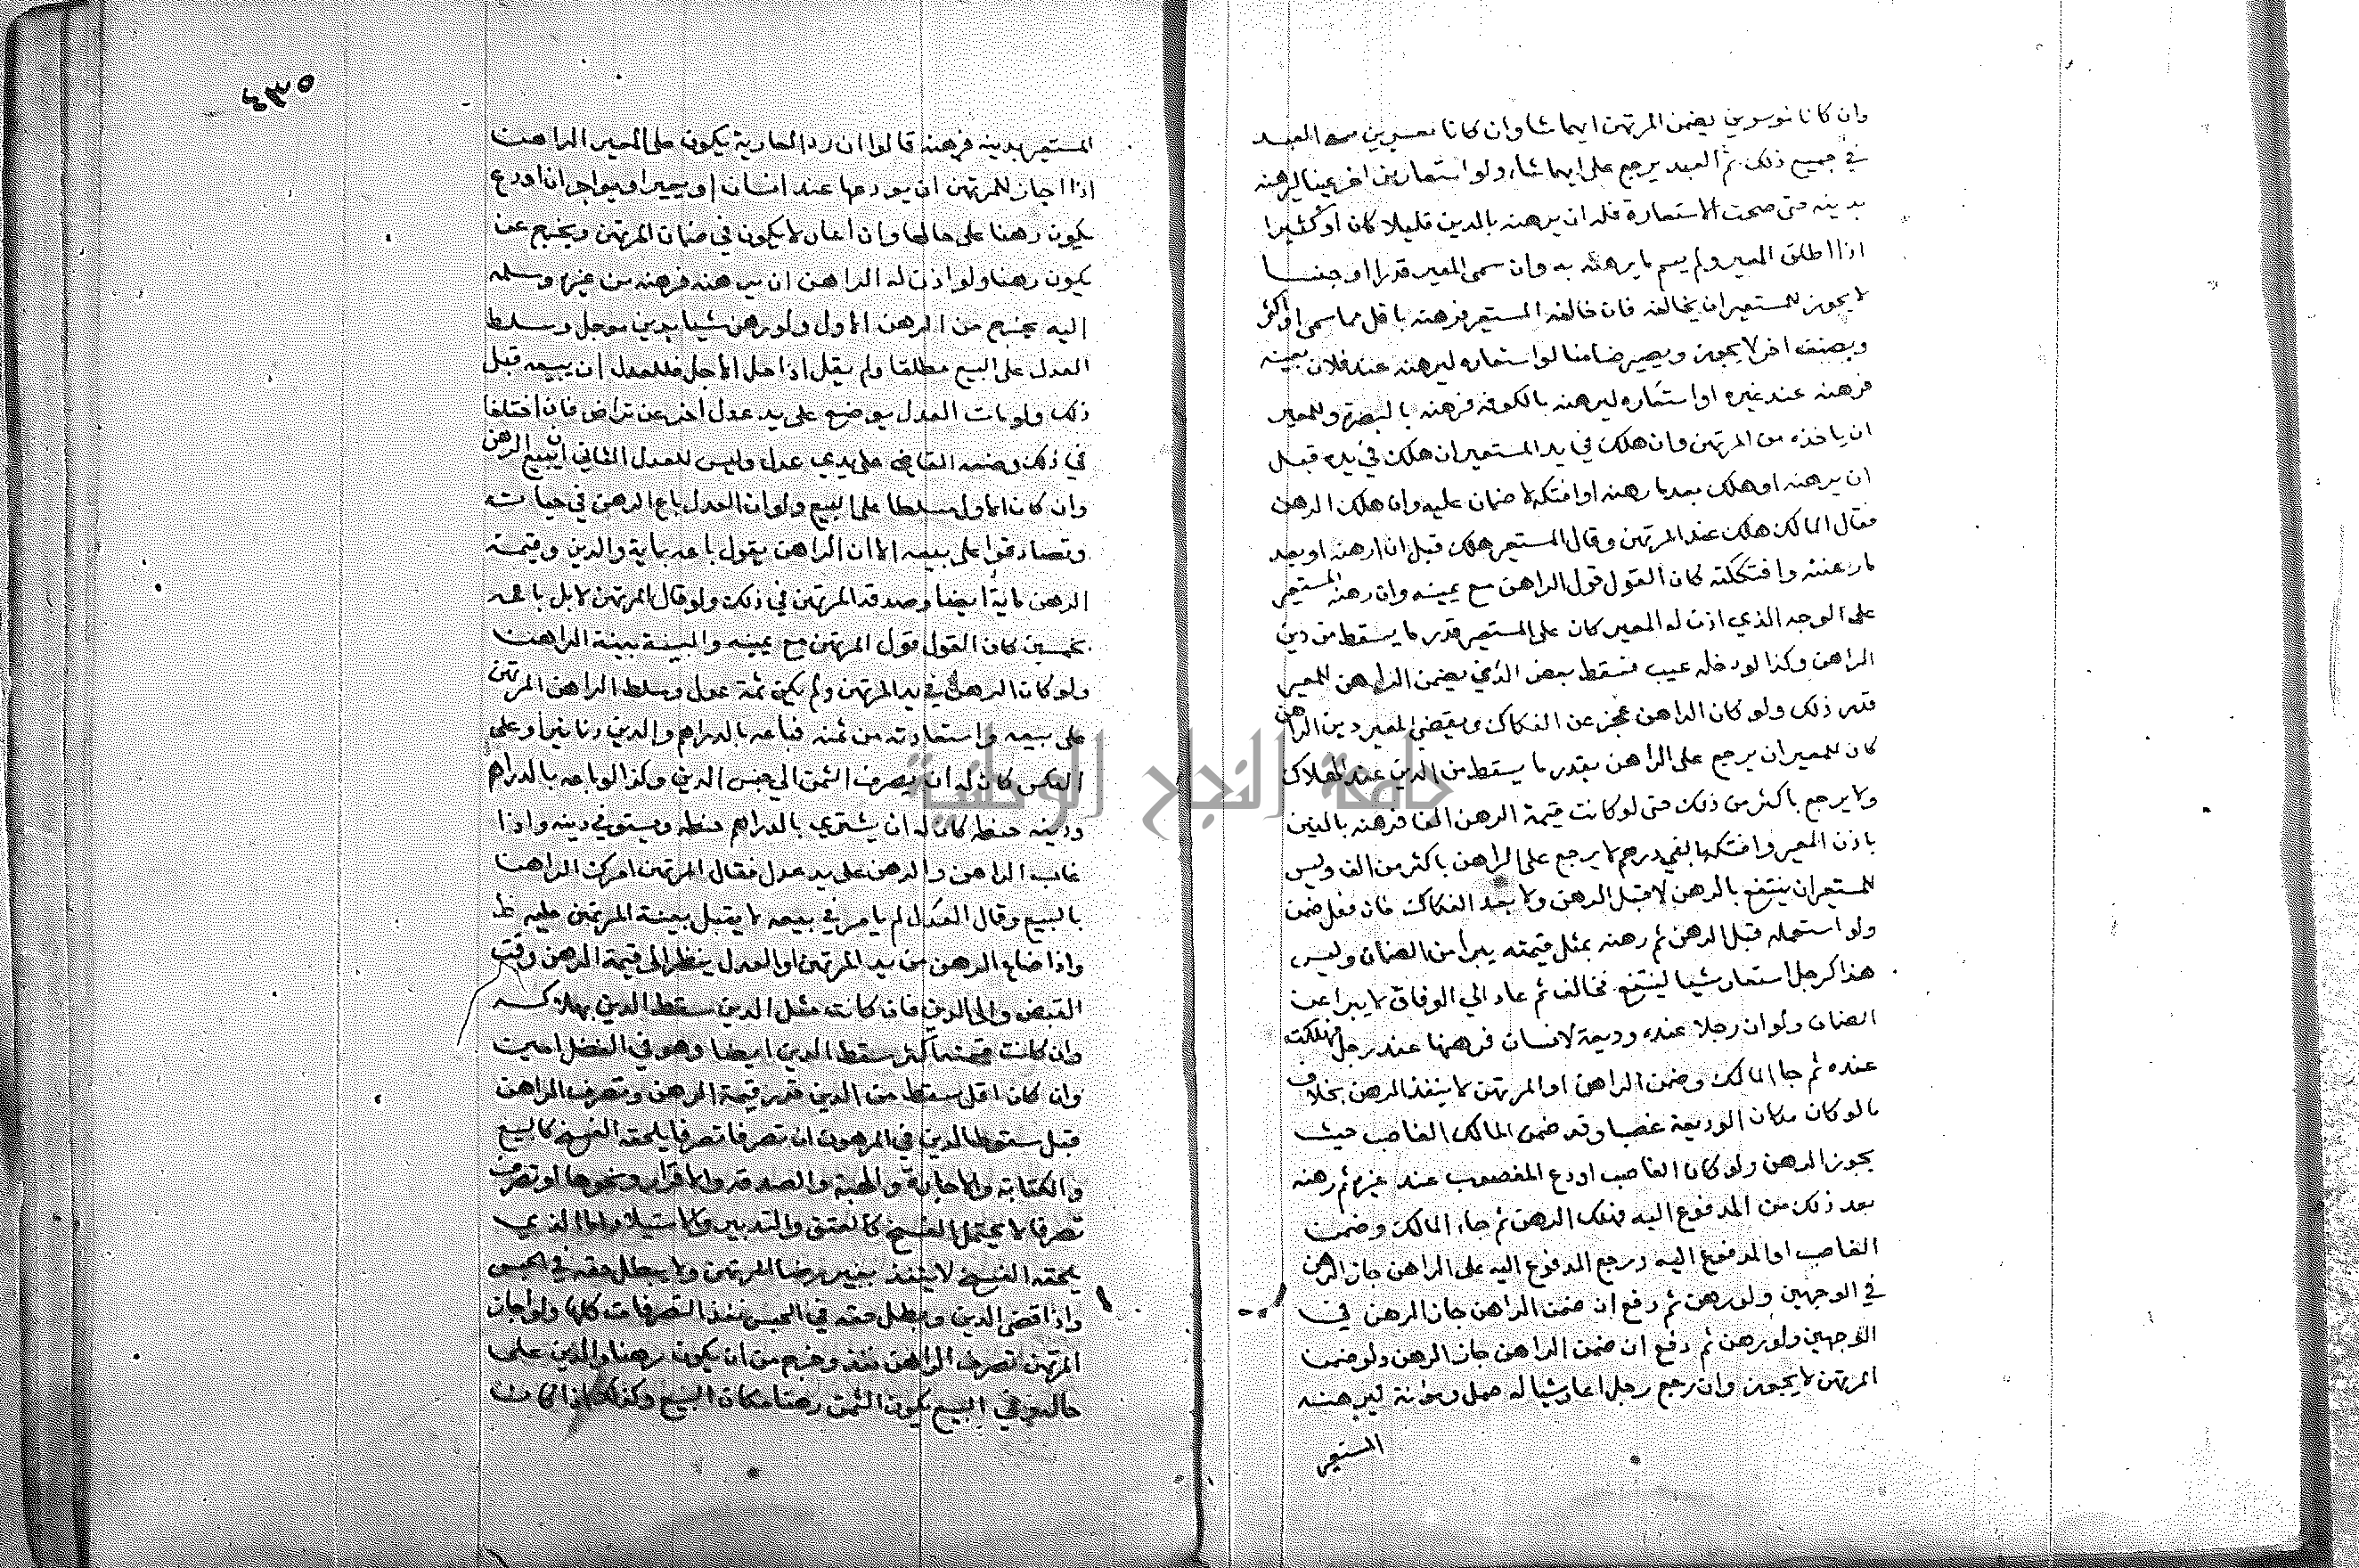 وان كانا موسرين يضمن المرتهن ايهما شا وان كانا معسرين سعى العبد
في جميع ذلك ثم العبد يرجع على ايهما شاء ولو استعار من اخر عينا ليرهنه
بدينه حتى صحت الاستعارة فله ان يرهنه بالدين قليلا كان او كثيرا
اذا اطلق المعير ولم يسم ما يرهنه به وان سمى المعير قدرا او جنسا
لا يجوز للمستعير ان يخالفه فان خالفه المستعير فرهنه باقل مما سمى او اكثر
وبصنف اخر لا يجوز ويصير ضامنا لو استعاره ليرهنه عند فلان بعينه
فرهنه عند غيره او استعاره ليرهنه بالكوفه فرهنه بالبصرة وللمعير
ان ياخذه من المرتهن وان هلك في يد المستعير ان هلك في يده قبل
ان يرهنه او هلك بعد ما رهنه او افتكه لا ضمان عليه وان هلك الرهن
فقال المالك هلك عند المرتهن وقال المستعير هلك قبل ان ارهنه او بعد
ما رهنته وافتككته كان القول قول الراهن مع يمينه وان رهنه المستعير
على الوجه الذي اذن له المعير كان على المستعير قدر ما يسقط من دين
الراهن وكذا لو دخله عيب فسقط بعض الدين يضمن الراهن للمعير
قدر ذلك ولو كان الراهن عجز عن الفكاك ويقضي المعير دين الراهن
كان للمعير ان يرجع على الراهن بقدر ما يسقط من الدين عند الهلاك
ولا يرجع باكثر من ذلك حتى لو كانت قيمة الرهن الفا فرهنه بالفين
باذن المعير وافتكه بالفي درهم لا يرجع على الراهن باكثر من الف وليس
للمستعير ان ينتفع بالرهن لا قبل الرهن ولا بعد الفكاك فان فعل ضمن
ولو استعمله قبل الرهن ثم رهنه بمثل قيمته يبرا من الضمان وليس
هذا كرجل استعار شيا لينتفع فخالف ثم عاد الي الوفاق لا يبرا عن
الضمان ولو ان رجلا عنده وديعة لانسان فرهنها عند رجل فهلكت
عنده ثم جا المالك وضمن الراهن او المرتهن لا ينفذ الرهن بخلاف
ما لو كان مكان الوديعة غصبا وقد ضمن المالك الغاصب حيث
يجوز الرهن ولو كان الغاصب اودع المغصوب عند غيره ثم رهنه
بعد ذلك من المدفوع اليه فهلك الرهن ثم جاء المالك وضمن
الغاصب او المدفوع اليه ورجع المدفوع اليه على الراهن جاز الرهن
في الوجهين ولو رهن ثم دفع ان ضمن الراهن جاز الرهن في
الوجهين ولو رهن ثم دفع ان ضمن الراهن جاز الرهن ولو ضمن
المرتهن لا يجوز وان رجع رجل اعار شيا له حمل ومؤنة ليرهنه
المستعير
٤٣٥
المستعير بدينه فرهنه قالوا ان رد العارية يكون على المعير الراهن
اذا اجاز للمرتهن ان يودعها عند انسان او يعير او يواجر ان اودع
يكون رهنا على حالها وان اعار لا يكون في ضمان المرتهن ويخرج عن
يكون رهنا ولو اذن له الراهن ان يرهنه فرهنه من غيره وسلمه
اليه يخرج من الرهن الاول ولو رهن شيا بدين موجل وسلط
العدل على البيع مطلقا ولم يقل اذا حل الاجل فللعدل ان يبيعه قبل
ذلك ولو مات العدل يوضع على يد عدل اخر عن تراض فان اختلفا
في ذلك وضعه القاضي على يدي عدل وليس للعدل الثاني ان يبيع الرهن
وان كان الاول مسلطا على البيع ولو ان العدل باع الرهن في حياته
وتصادقوا على بيعه الا ان الراهن يقول باعه بماية والدين وقيمة
الرهن ماية ايضا وصدقه المرتهن في ذلك ولو قال المرتهن لا بل باعه
بخمسين كان القول قول المرتهن مع يمينه والبينة بينة الراهن
ولو كان الرهن في يد المرتهن ولم يكن ثمة عدل وسلط الراهن المرتهن
على بيعه واستعادته من ثمنه فباعه بالدراهم والدين دنانير او على
العكس كان له ان يصرف الثمن الى جنس الدين وكذا لو باعه بالدراهم
ودينه حنطه كان له ان يشتري بالدراهم حنطه ويستوفي دينه واذا
غاب الراهن والرهن على يد عدل فقال المرتهن امرك الراهن
بالبيع وقال العدل لم يامرني ببيعه لا يقبل بينة المرتهن عليه
واذا ضاع الرهن من يد المرتهن او العدل ينظر الى قيمة الرهن وقت
القبض والى الدين فان كانت مثل الدين سقط الدين بهلاكه
وان كانت قيمته اكثر سقط الدين ايضا وهو في الفضل امين
وان كان اقل سقط من الدين قدر قيمة الرهن وتصرف الراهن
قبل سقوط الدين في المرهون ان تصرفا تصرفا يلحقه الفسخ كالبيع
والكتابة والاجارة والهبة والصدقه والاقرار ونحوها او تصرف
تصرفا لا يحتمل الفسخ كالعتق والتدبير والاستيلاد اما الذي
يلحقه الفسخ لا ينفذ بغير رضا المرتهن ولا يبطل حقه في الحبس
واذا قضى الدين وبطل حقه في الحبس نفذ التصرفات كلها ولو اجاز
المرتهن تصرف الراهن نفذ وخرج من ان يكون رهنا والدين على
حاله وفي البيع يكون الثمن رهنا مكان البيع وكذلك اذا كان
جامعة النجاح الوطنية